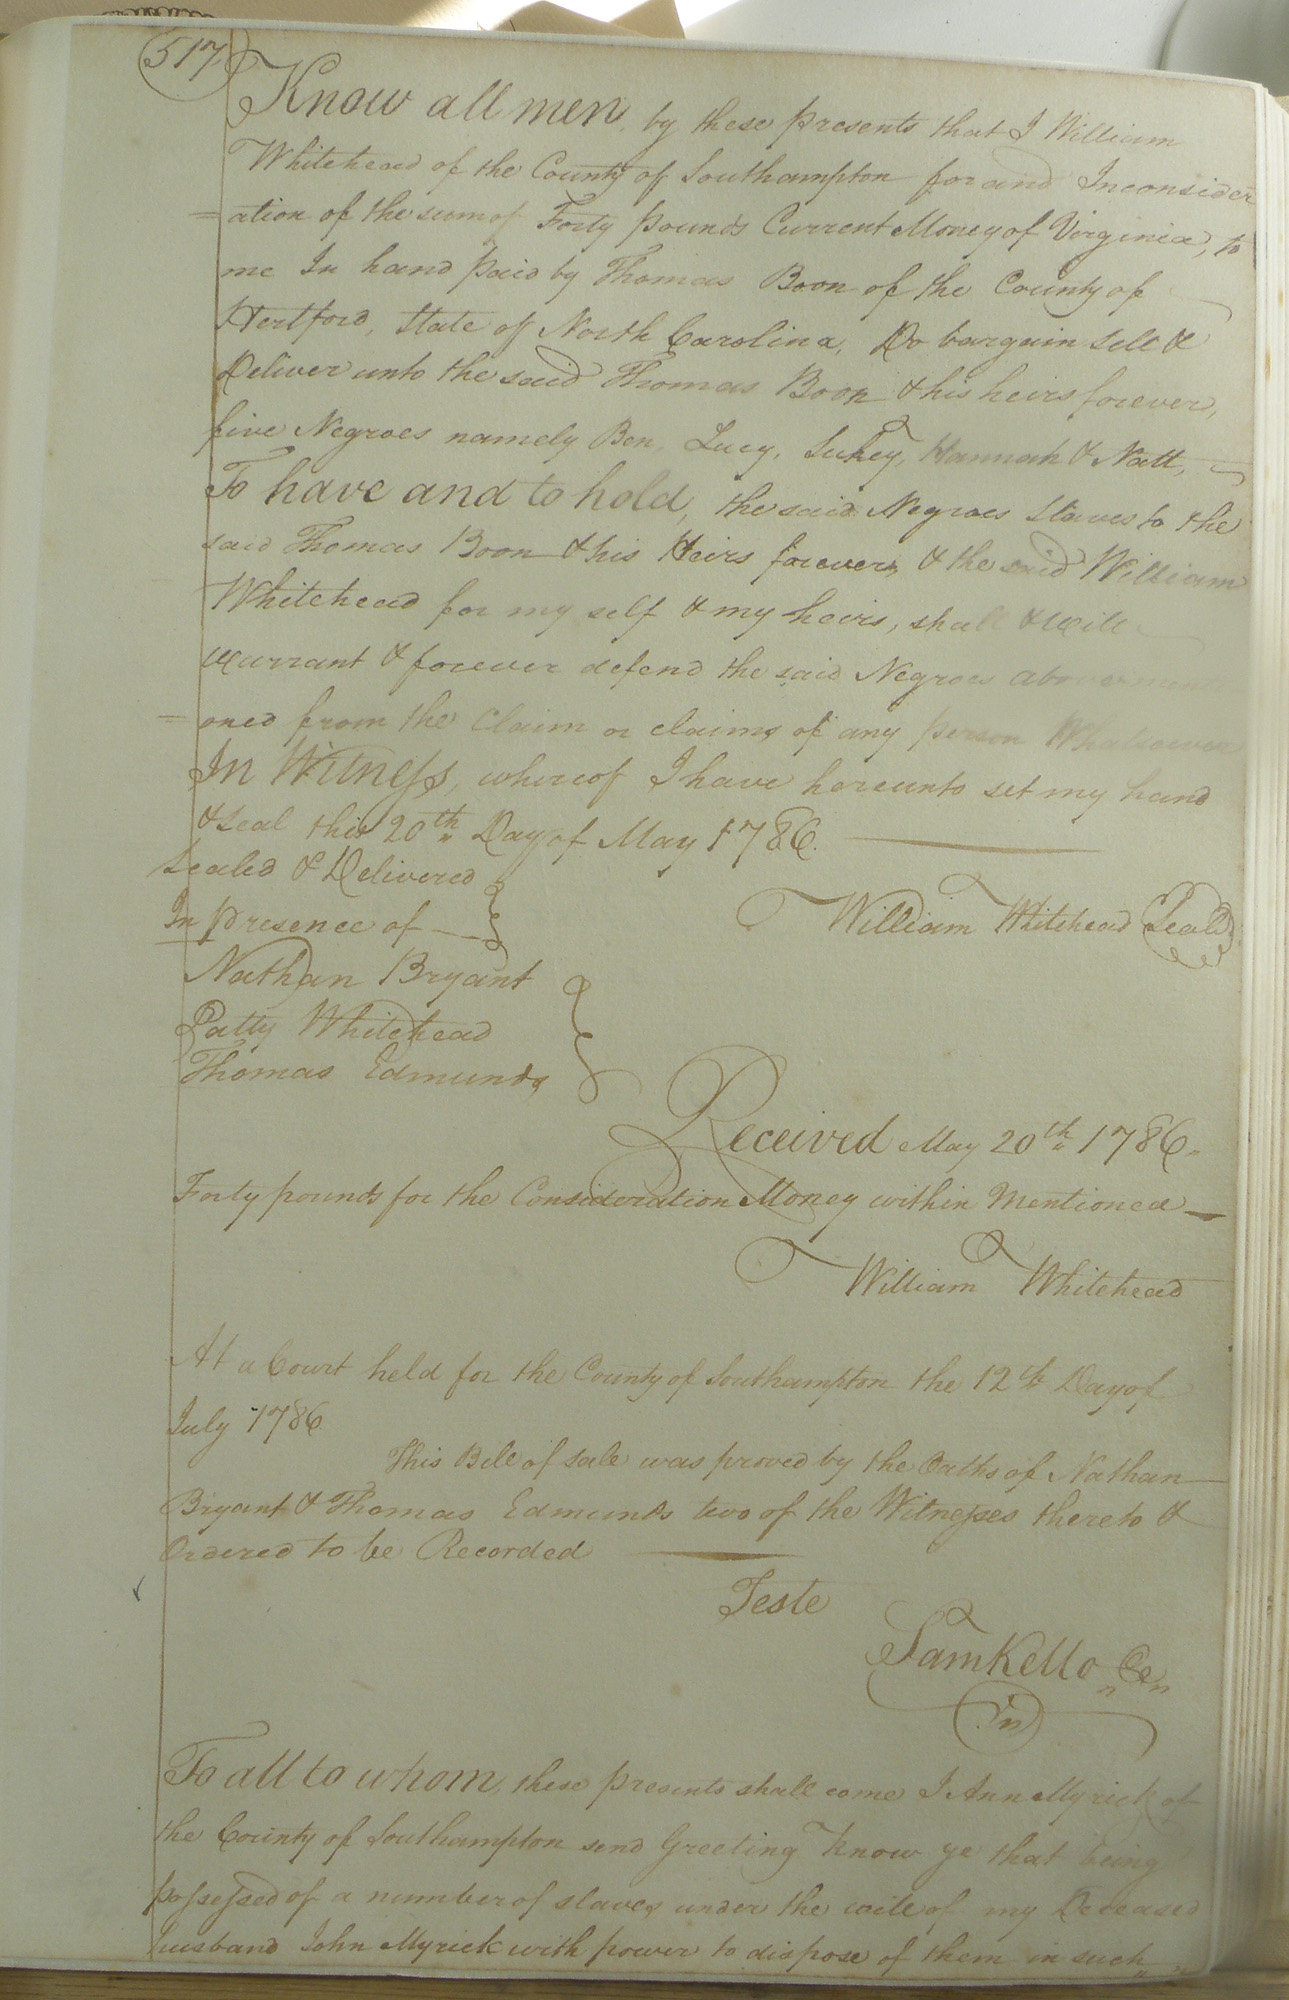 517
Know all men by these presents that I William
Whitehead of the County of Southampton for and Inconsider
=ation of the sum of Forty pounds Current Money of Virginia, to
me In hand paid by Thomas Boon of the County of
Hertford, State of North Carolina, Do bargain sell &
Deliver unto the said Thomas Boon & his heirs forever,
five Negroes namely Ben, Lucy, Sukey, Hannah & Natt,
To have and to hold, the said Negroes Slaves to the
said Thomas Boon & his Heirs forever, & the said William
Whitehead for my self & my heirs, shall & will
warrant & forever defend the said Negroes above
=oned from the Claim or claims of any person Whatsoever
In Witness, whereof I have hereunto set my hand
& seal this 20th Day of May 1786.
Sealed & Delivered
In presence of
William Whitehead Seal
Nathan Bryant
Patty Whitehead
Thomas Edmunds
Received May 20th 1786.
Forty pounds for the Consideration Money within Mentioned
William Whitehead
At a Court held for the County of Southampton the 12th Day of
July 1786
This Bill of sale was proved by the Oaths of Nathan
Bryant & Thomas Edmunds two of the Witnesses thereto &
Ordered to be Recorded
Teste
Sam Kello
To all to whom, these presents shall come I Ann Myrick of
the County of Southampton send Greeting know ye that being
possessed of a number of slaves under the will of my Deceased
husband John Myrick with power to dispose of them in such